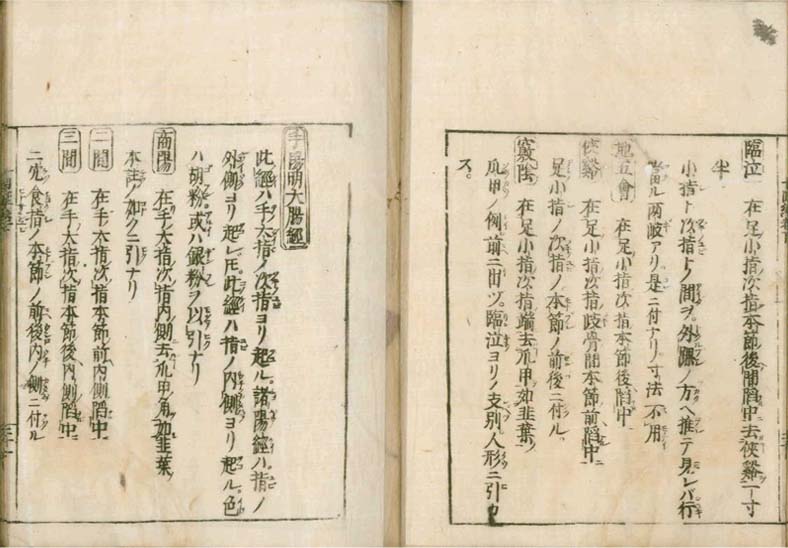 臨泣 在足小指次指本節後間陷中去俠谿一寸
半
小指ト次指トノ間ヲ。外踝ノ方ヘ推テ見レバ行
當ル両岐アリ是ニ付ナリノ寸法不用
地五會 在足小指次指本節後陷中
俠谿 在足小指次指歧骨間本節前陷中
足小指ノ次指ノ本節ノ前後ニ付ル。
竅陰 在足小指次指端去爪甲如韭葉
爪甲ノ側前ニ出ヅ。臨泣ヨリノ支別人形ニ引
ズ。
手陽明大腸經
此經ハ手大指ノ次指ヨリ起ル。諸陽經ハ。指ノ
外側ヨリ起レ𪜈。此經ハ指ノ内側ヨリ起ル。色
ハ胡粉。或ハ銀粉ヲ以引ナリ
商陽 在手大指次指内側去爪甲角如韭葉
本註ノ如クニ引ナリ
二間 在手大指次指本節前内側陷中
三間 在手大指次指本節後内側陷中
二穴食指ノ本節ノ前後内ノ側ニ付ル